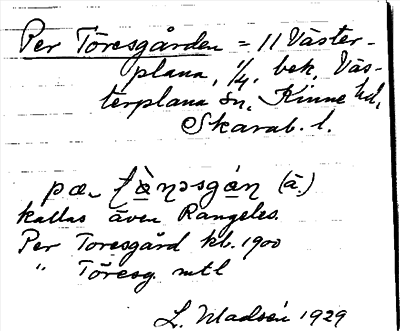 Per Töresgården = 11 Väster-
plana, 1/4, bek, Väs-
terplana sn, Kinne hd,
Skarab. l.
pæ tæ̀ṇəsgạ́ṇ (ä.)
kallas även Rangeles.
Per Toresgård kb. 1900
" Töresg. mtl
L. Madsén 1929